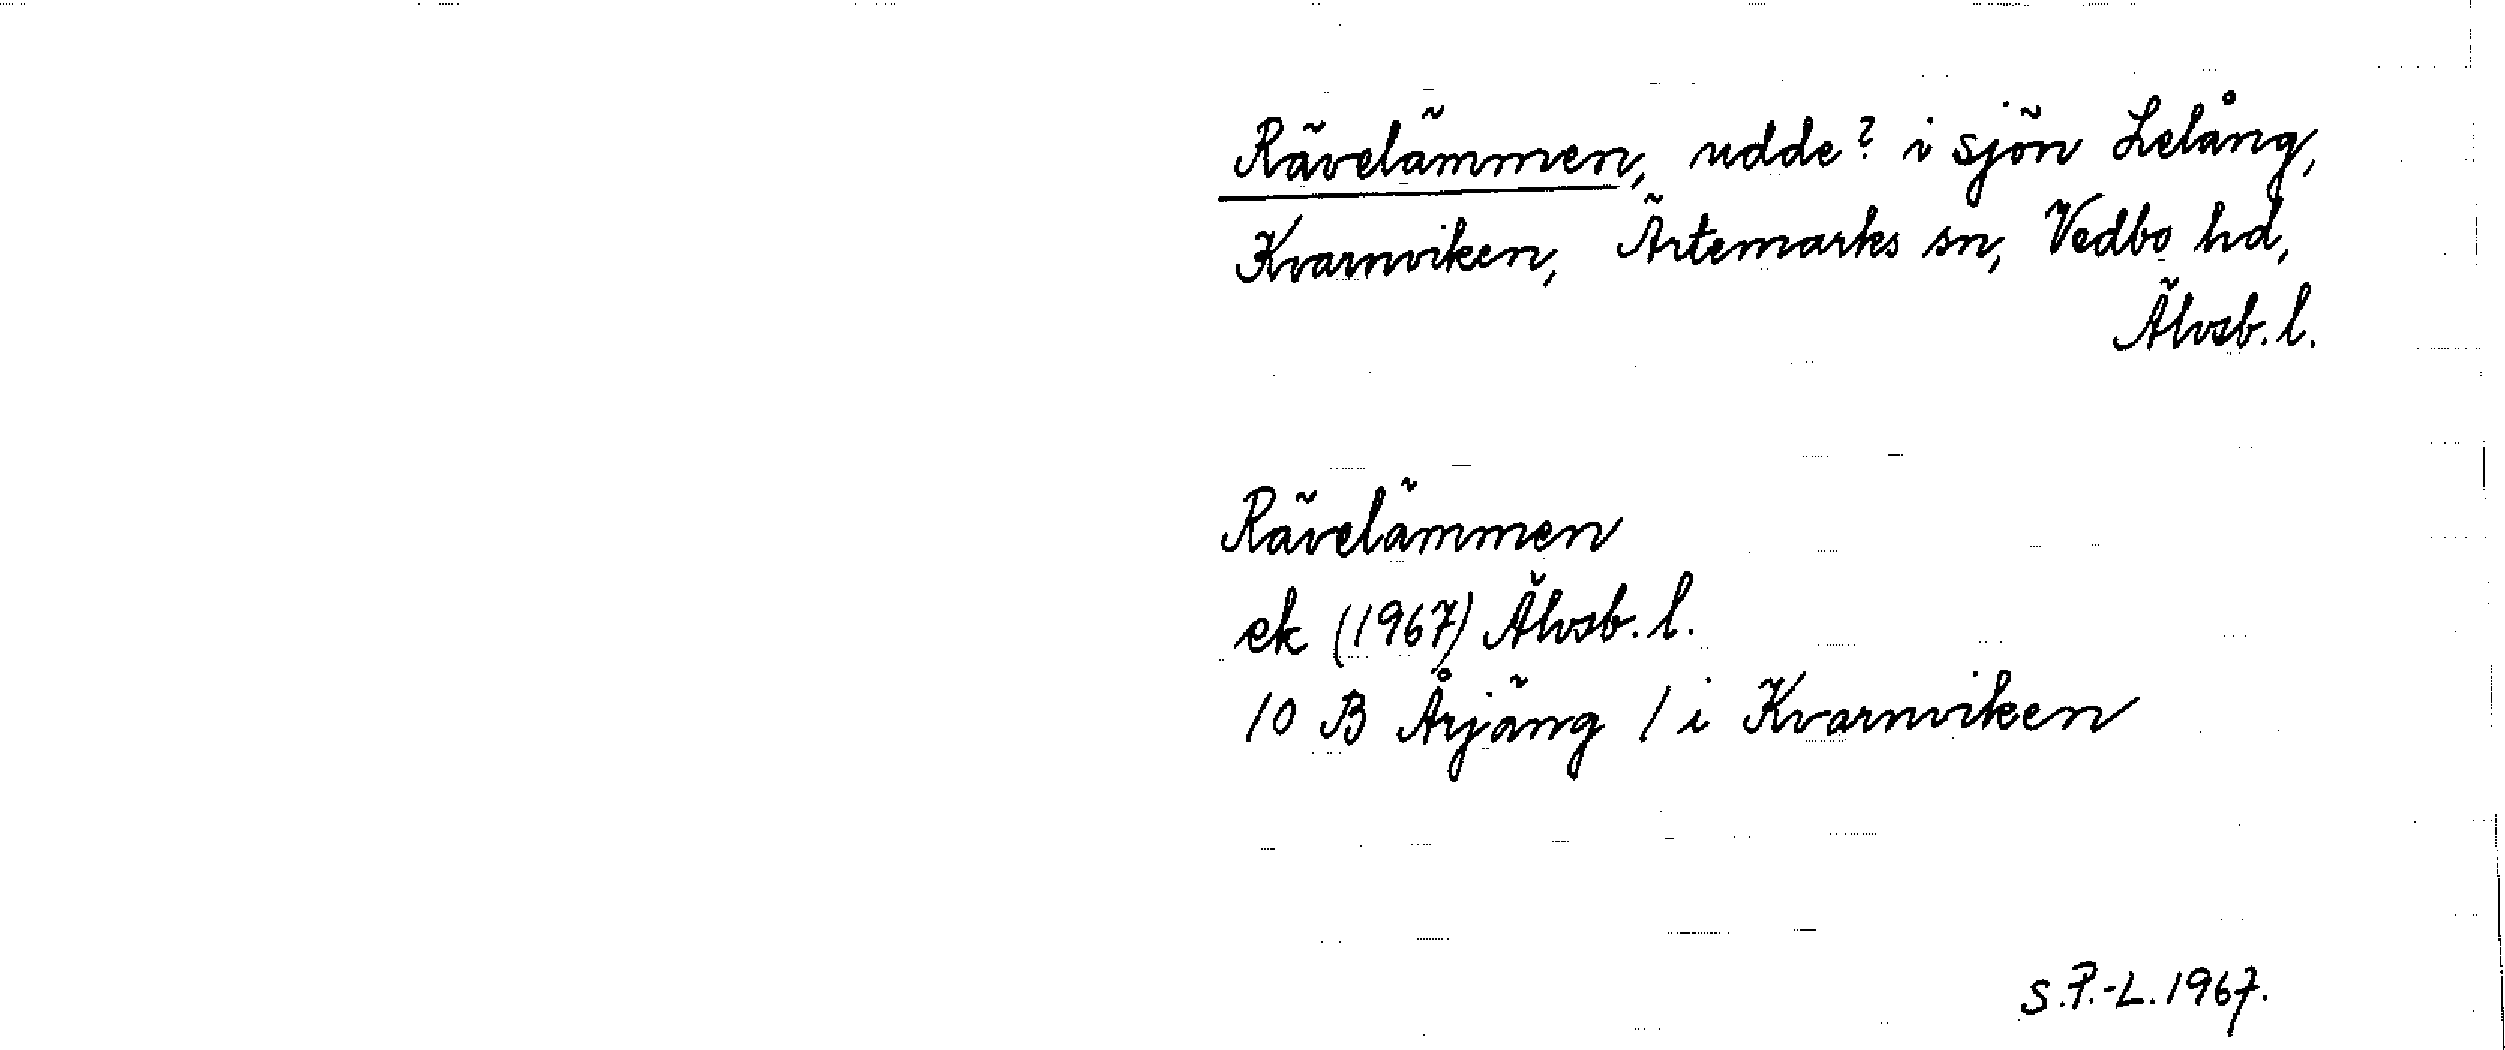 Rävelämmen, udde? i sjön Lelång,
Kvarnviken, Ärtemarks sn, Vedbo hd,
Älvsb. l.
Rävelämmen
ek (1967) Älvsb. l.
10 B Årjäng / i Kvarnviken
S.P.-L. 1967.